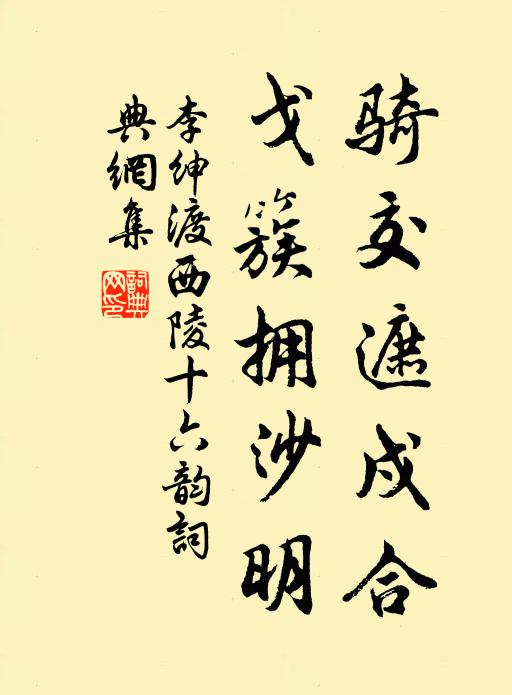 骑交遮戍合
戈簇拥沙明
李绅渡西陵十六韵詞
典網集
詞典網印